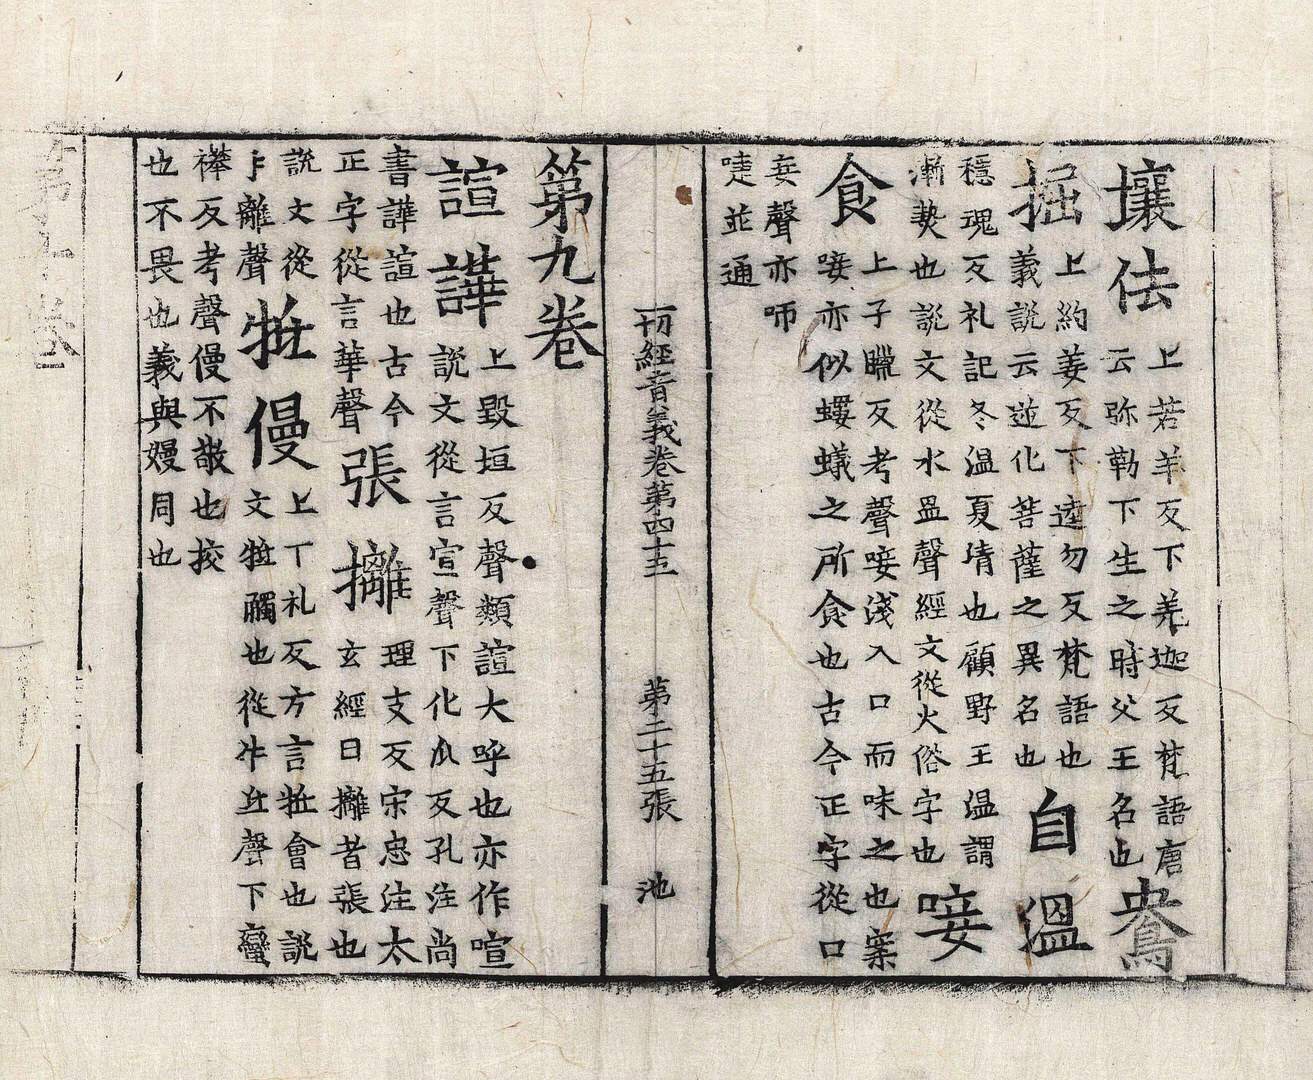 壤佉
上若羊反下羌迦反梵語唐
云弥勒下生之時父王名也
鴦
掘
上約姜反下逵勿反梵語也
義説云逆化菩薩之異名也
自溫
穩魂反礼記冬溫夏凊也顧野王溫謂
漸㷉也説文從水昷聲經文從火俗字也
唼
食
上子臘反考聲唼淺入口而味之也案
唼亦似螻蟻之所食也古今正字從口
妾聲亦咂
啑並通
一切經音義卷第四十五　第二十五張　池
第九卷
諠譁
上毀垣反聲類諠大呼也亦作喧
説文從言宣聲下化瓜反孔注尚
書譁諠也古今
正字從言華聲
張攡
理支反宋忠注太
玄經曰攡者張也
説文從
扌離聲
牴慢
上丁礼反方言牴會也説
文牴觸也從牛氐聲下蠻
襻反考聲僈不敬也挍
也不畏也義與嫚同也